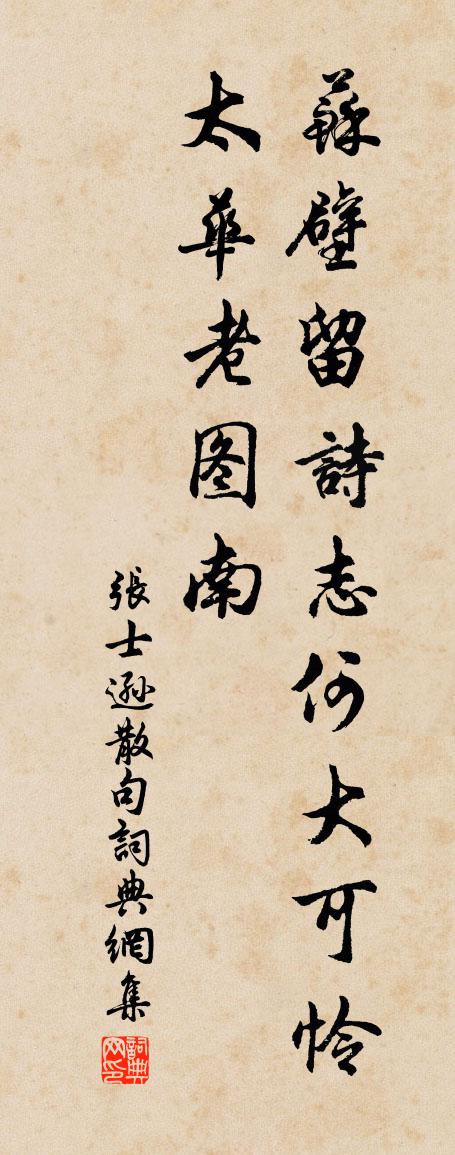 蘇壁留詩志何大可怜
太華老图南
張士遜散句詞典網集
詞典网印